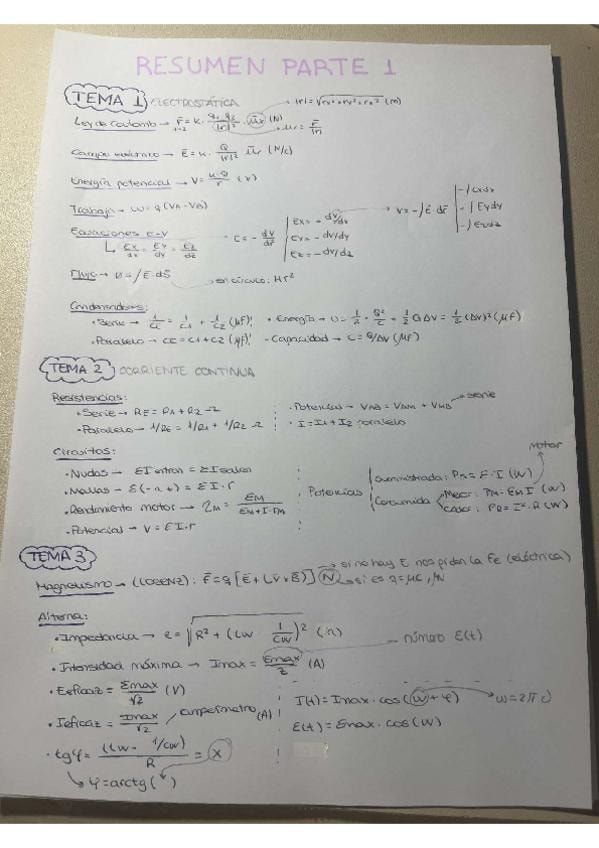 RESUMEN PARTE 1
TEMA 1 ELECTROSTÁTICA
|r| = √rx²+ry²+rz² (m)
Ley de Coulomb → F = K · q1 q2 / |r|² · ur (N)
ur = r / |r|
Campo eléctrico → E = K · Q / |r|² ur (N/C)
Energía potencial → V = K·Q / r (V)
Trabajo → W = q (VA - VB)
Ecuaciones E-V
Ex/dx = Ey/dy = Ez/dz
E = - dV/dr
Ex = - dv/dx
Ey = - dv/dy
Ez = - dv/dz
V = - ∫ E dr
- ∫ Exdx
- ∫ Eydy
- ∫ Ezdz
Flujo → Ø = ∫ E · dS → en círculo: πr²
Condensadores:
• Serie → 1/CE = 1/C1 + 1/C2 (μF) • Energía → U = 1/2 · Q²/C = 1/2 QΔV = 1/2 (ΔV)² (μF)
• Paralelo → CE = C1 + C2 (μF) - Capacidad → C = Q/ΔV (μF)
TEMA 2 CORRIENTE CONTINUA
Resistencias:
• Serie → RE = R1 + R2 Ω • Potencial → VAB = VAM + VMB → serie
• Paralelo → 1/RE = 1/R1 + 1/R2 Ω • I = I1 + I2 paralelo
Circuitos:
• Nudos → ΣI entran = ΣI salen
• Mallas → Ɛ(-a+) = ΣI · r
• Rendimiento motor → ηM = EM / EM + I·rM
• Potencial → V = ΣI·r
Potencias
Suministrada: PS = Ɛ·I (W)
Motor
Consumida
Mecan: PM = EM I (W)
Calor: PR = I²·R (W)
TEMA 3
→ si no hay E nos piden la Fe (eléctrica)
Magnetismo → (LORENZ): F = q [E + (v × B)] (N) → si es q = μC, μN
Alterna:
• Impedancia → Z = √R² + (LW - 1/CW)² (Ω)
número Ɛ(t)
• Intensidad máxima → Imax = Ɛmax / Z (A)
• Eeficaz = Ɛmax / √2 (V)
I(t) = Imax · cos(W + φ) → ω = 2π
• Ieficaz = Imax / √2 / amperímetro (A)
Ɛ(t) = Ɛmax · cos(W)
• tgφ = (LW - 1/CW) / R = X
φ = arctg ( )